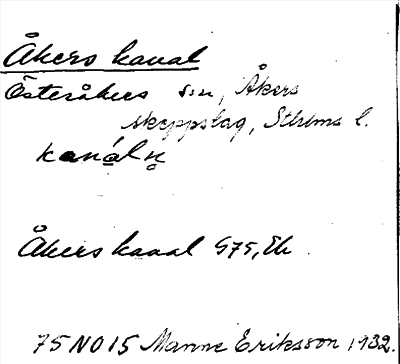 Åkers kanal
Österåkers sn, Åkers
skeppslag, Sthlms l.
kanáln̥
Åkers kanal G75, Ek
75 NO 15 Manne Eriksson 1932.